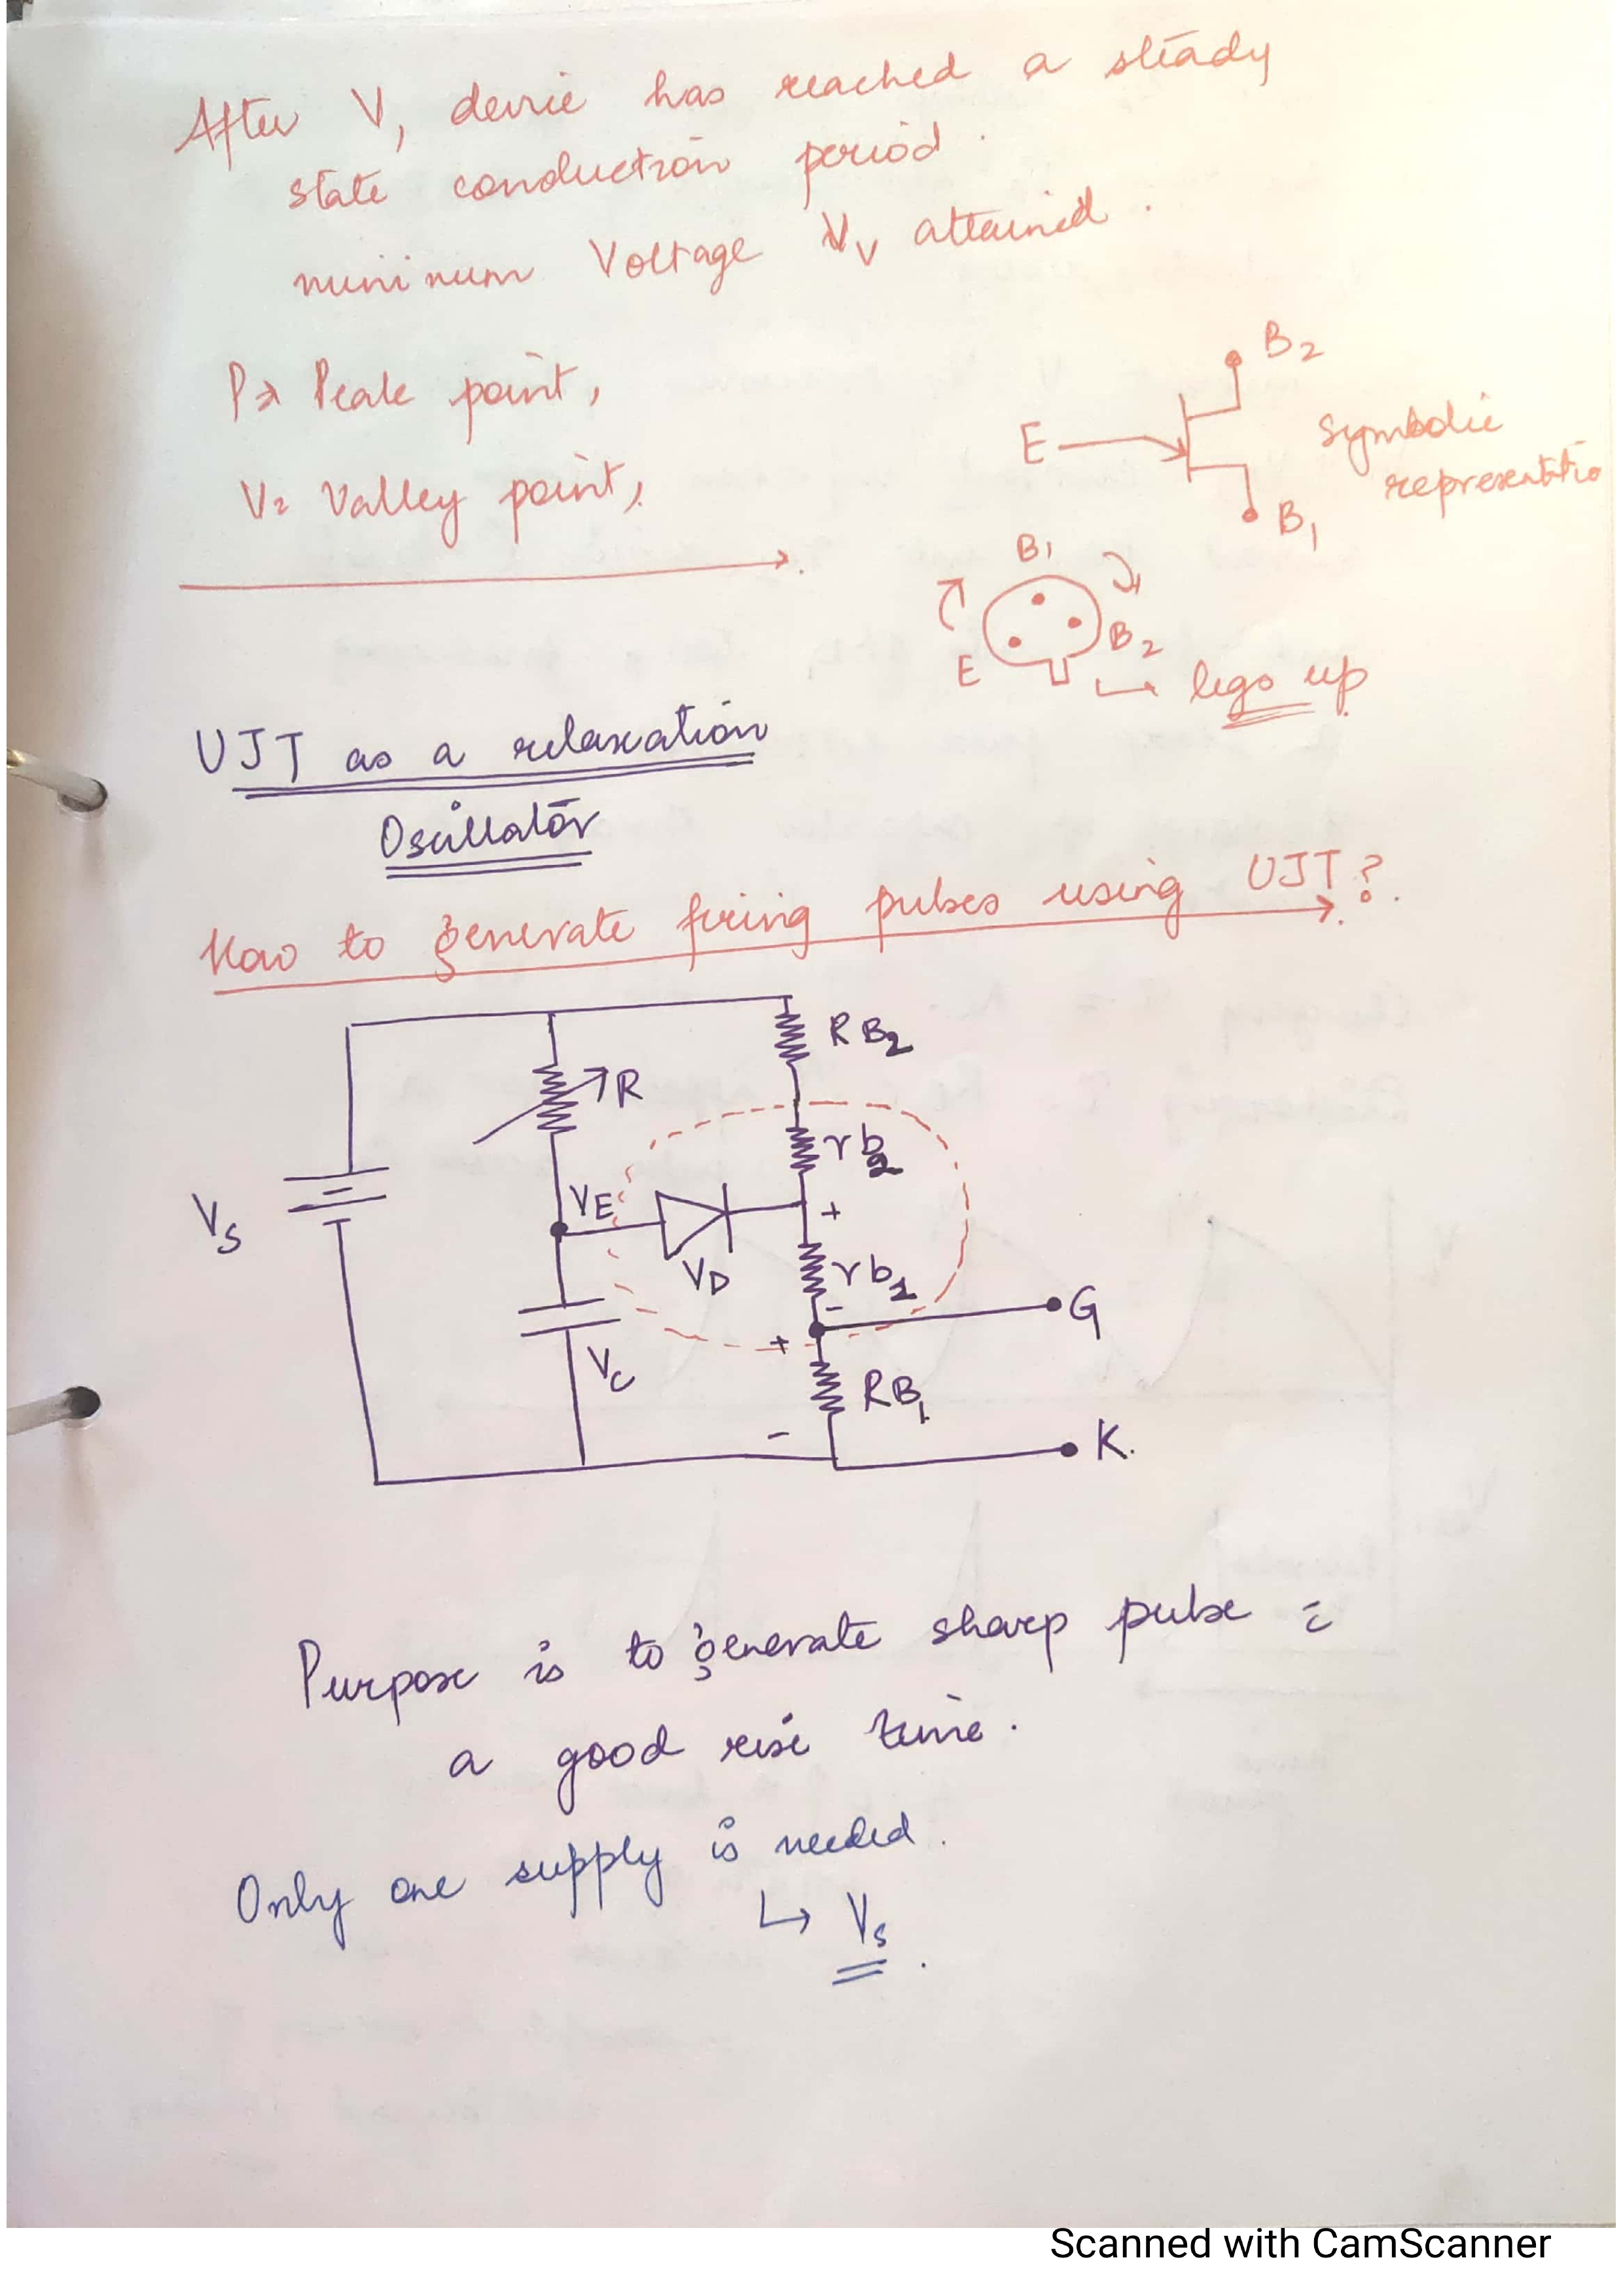 After V, device has reached a steady
state conduction period.
minimum Voltage Vv attained.
P → Peak point,
V = Valley point,
B2
E
Symbolic
representatio
B1
B1
B2
E
→ legs up
UJT as a relaxation
Oscillator
How to generate firing pulses using UJT?
RB2
R
rb2
VE
+
VS
VD
rb1
-
G
+
VC
RB1
-
K.
Purpose is to generate sharp pulse c̄
a good rise time.
Only one supply is needed.
↳ Vs.
Scanned with CamScanner